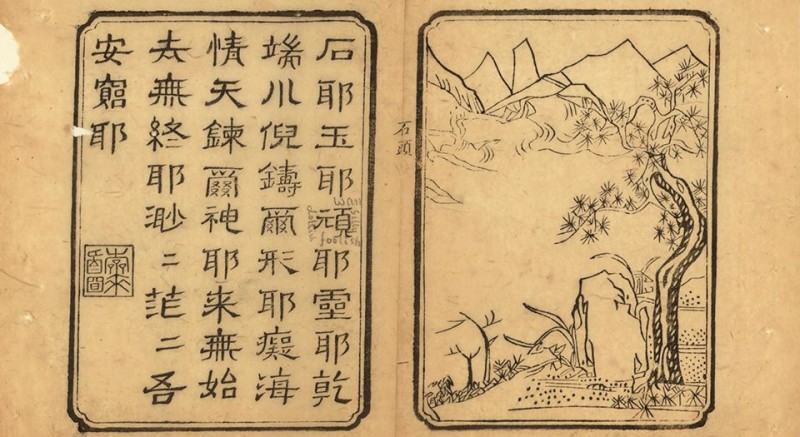 石頭
石耶玉耶頑耶靈耶乾
端川倪鑄爾形耶癡海
情天鍊爾神耶来無始
去無終耶渺〻茫〻吾
安窮耶
wan
silly
foolish